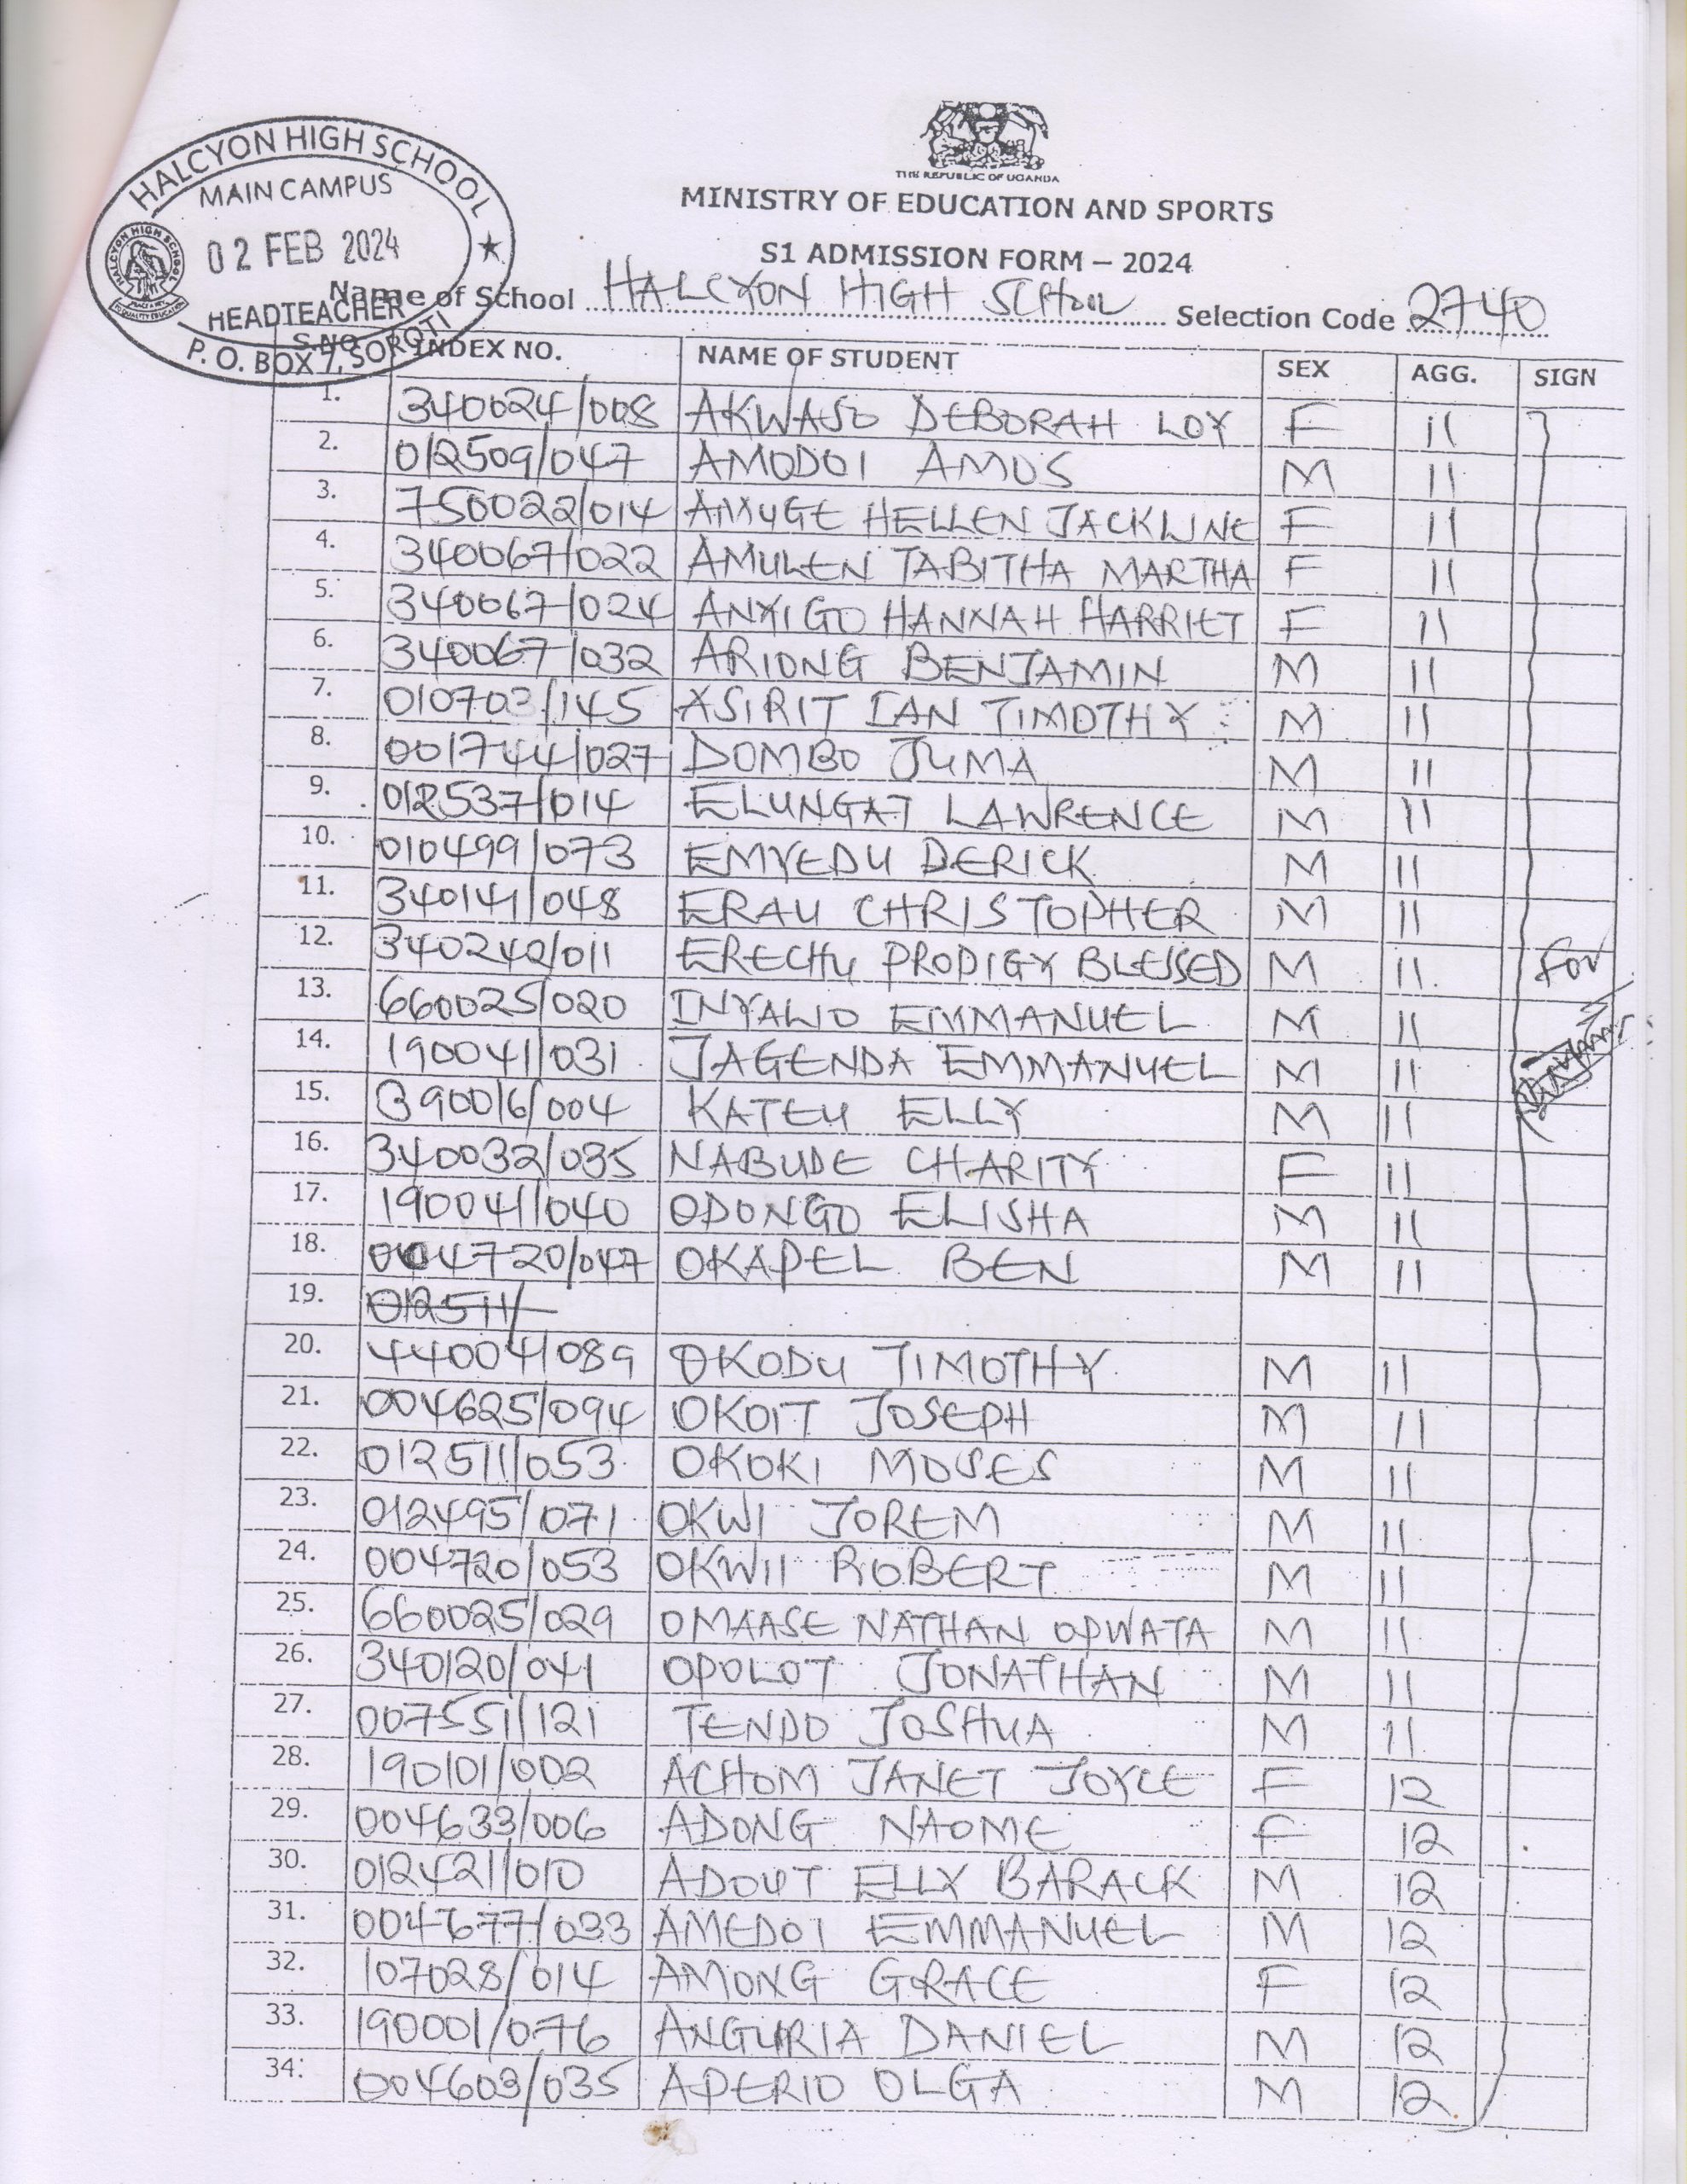 HALCYON HIGH SCHOOL
MAIN CAMPUS
02 FEB 2024
HEADTEACHER
P. O. BOX 7, SOROTI
THE REPUBLIC OF UGANDA
MINISTRY OF EDUCATION AND SPORTS
S1 ADMISSION FORM – 2024
Name of School HALCYON HIGH SCHOOL Selection Code 2740
S.NO INDEX NO. NAME OF STUDENT SEX AGG. SIGN
1. 340024/008 AKWASO DEBORAH LOY F 11
2. 012509/047 AMODOI AMOS M 11
3. 750022/014 AMUGE HELLEN JACKLINE F 11
4. 340067/022 AMULEN TABITHA MARTHA F 11
5. 340067/024 ANYIGO HANNAH HARRIET F 11
6. 340067/032 ARIONG BENJAMIN M 11
7. 010703/145 ASIRIT IAN TIMOTHY M 11
8. 001744/027 DOMBO JUMA M 11
9. 012537/014 ELUNGAT LAWRENCE M 11
10. 010499/073 EMYEDU DERICK M 11
11. 340141/048 ERAU CHRISTOPHER M 11
12. 340242/011 ERECHU PRODIGY BLESSED M 11 For
13. 660025/020 INYALIO EMMANUEL M 11
14. 190041/031 JAGENDA EMMANUEL M 11
15. 390016/004 KATEU ELLY M 11
16. 340032/035 NABUDE CHARITY F 11
17. 190041/040 ODONGO ELISHA M 11
18. 004720/047 OKAPEL BEN M 11
19. 012511/
20. 440041/089 OKODU TIMOTHY M 11
21. 004625/094 OKOIT JOSEPH M 11
22. 012511/053 OKOKI MOSES M 11
23. 012495/071 OKWI JOREM M 11
24. 004720/053 OKWII ROBERT M 11
25. 660025/029 OMAASE NATHAN OPWATA M 11
26. 340120/041 OPOLOT JONATHAN M 11
27. 007551/121 TENDO JOSHUA M 11
28. 190101/002 ACHOM JANET JOYCE F 12
29. 004633/006 ADONG NAOME F 12
30. 012421/010 ADOUT ELLY BARACK M 12
31. 004677/033 AMEDOI EMMANUEL M 12
32. 107028/014 AMONG GRACE F 12
33. 190001/076 ANGURIA DANIEL M 12
34. 004603/035 APERIO OLGA M 12